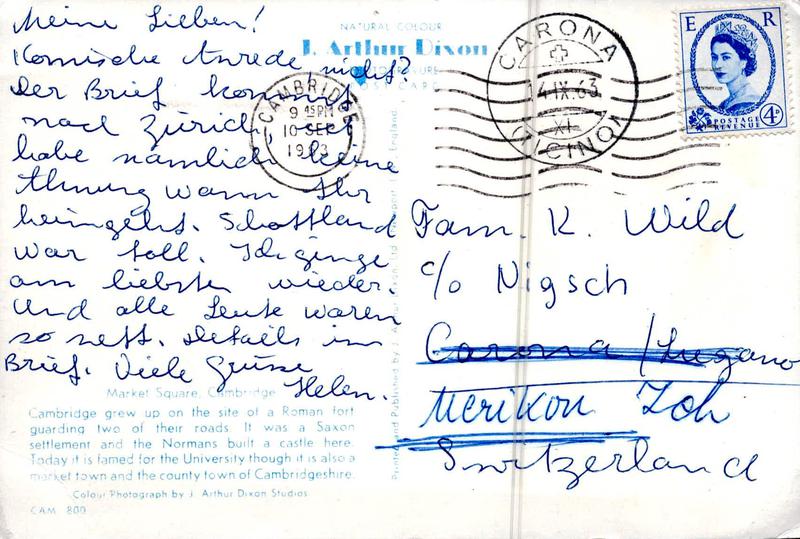 Meine Lieben!
Komische Anrede nicht?
Der Brief kommt
nach Zürich ich
habe nämlich keine
Ahnung wann Ihr
heimgeht. Schottland
war toll. Ich ginge
am liebsten wieder.
Und alle Leute waren
so nett. Details im
Brief. Viele Grüsse
Helen.
Market Square, Cambridge
Cambridge grew up on the site of a Roman fort
guarding two of their roads. It was a Saxon
settlement and the Normans built a castle here.
Today it is famed for the University though it is also a
market town and the county town of Cambridgeshire.
Colour Photograph by J. Arthur Dixon Studios
CAM 800
NATURAL COLOUR
J. Arthur Dixon
Printed and Published by J. Arthur Dixon Ltd. Newport England
CAMBRIDGE
9 45PM
10 SEP
1963
CARONA
14.IX.63
XI
(TICINO)
E R
POSTAGE
REVENUE
4D
Fam. K. Wild
c/o Nigsch
Carona / Lugano
Uerikon Zch
Switzerland